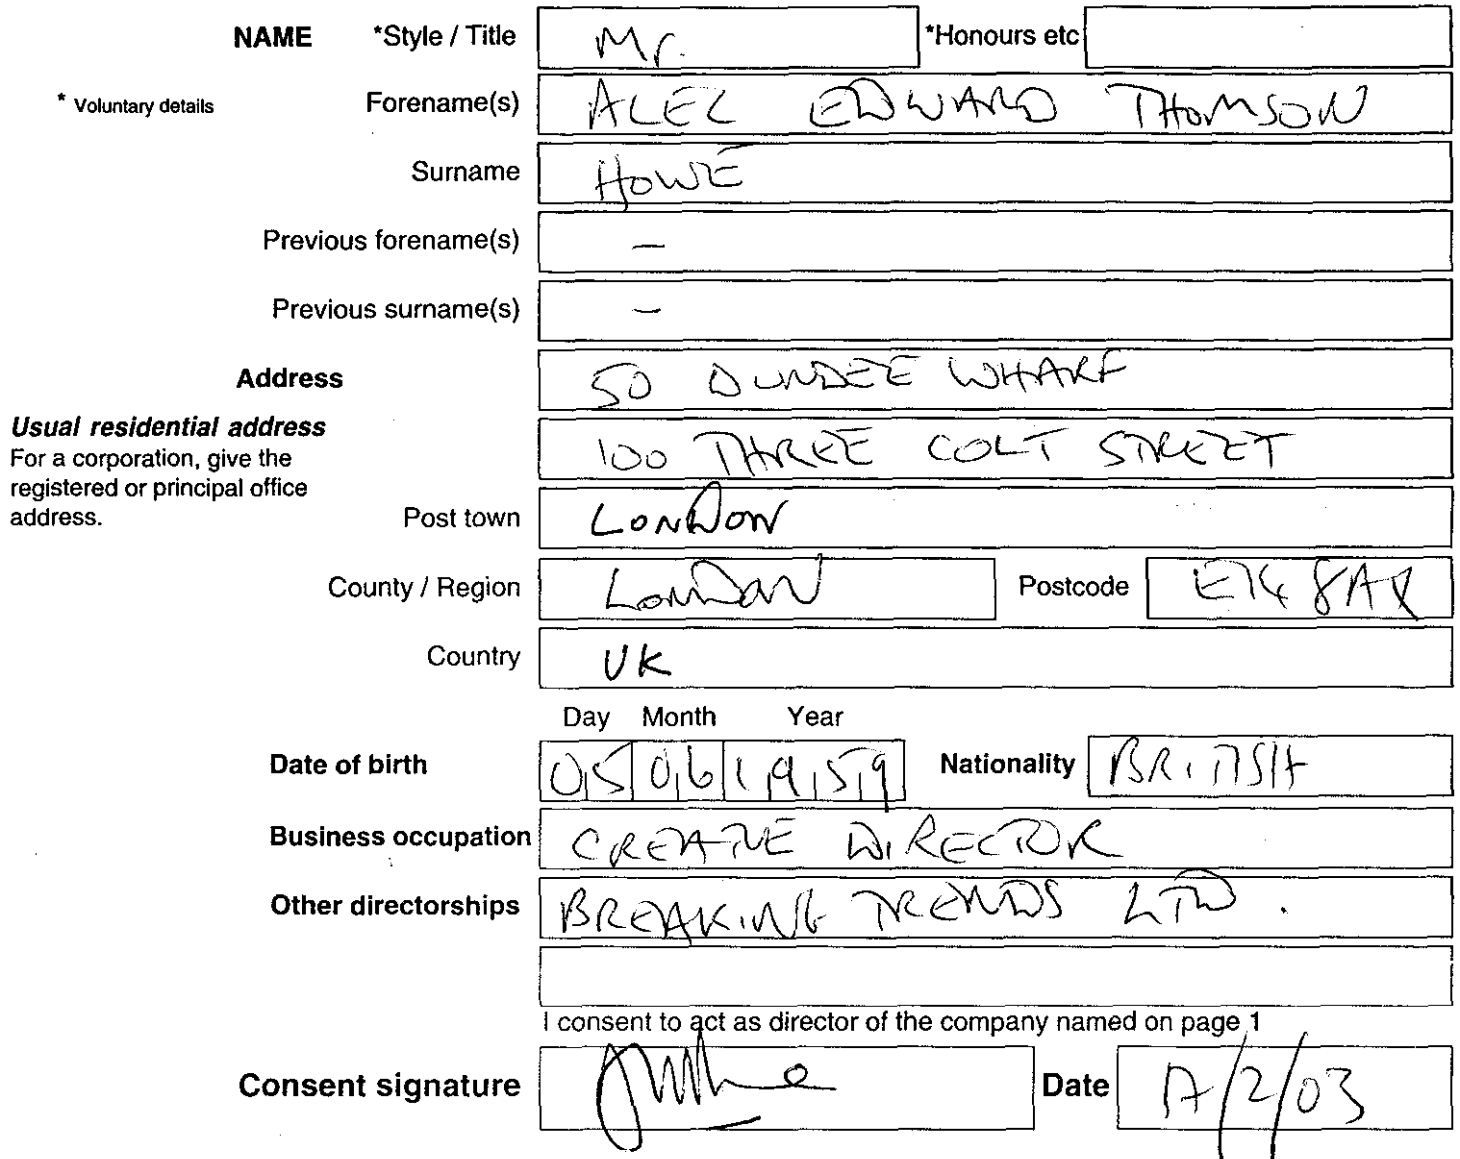 NAME *Style / Title Mr. *Honours etc
* Voluntary details Forename(s) ALEC EDWARD THOMSON
Surname HOWE
Previous forename(s) —
Previous surname(s) —
Address 50 DUNDEE WHARF
Usual residential address
For a corporation, give the
registered or principal office
address.
100 THREE COLT STREET
Post town LONDON
County / Region LONDON Postcode E14 8AX
Country UK
Day Month Year
Date of birth 05 06 1959 Nationality BRITISH
Business occupation CREATIVE DIRECTOR
Other directorships BREAKING TRENDS LTD.
I consent to act as director of the company named on page 1
Consent signature Date 17/2/03